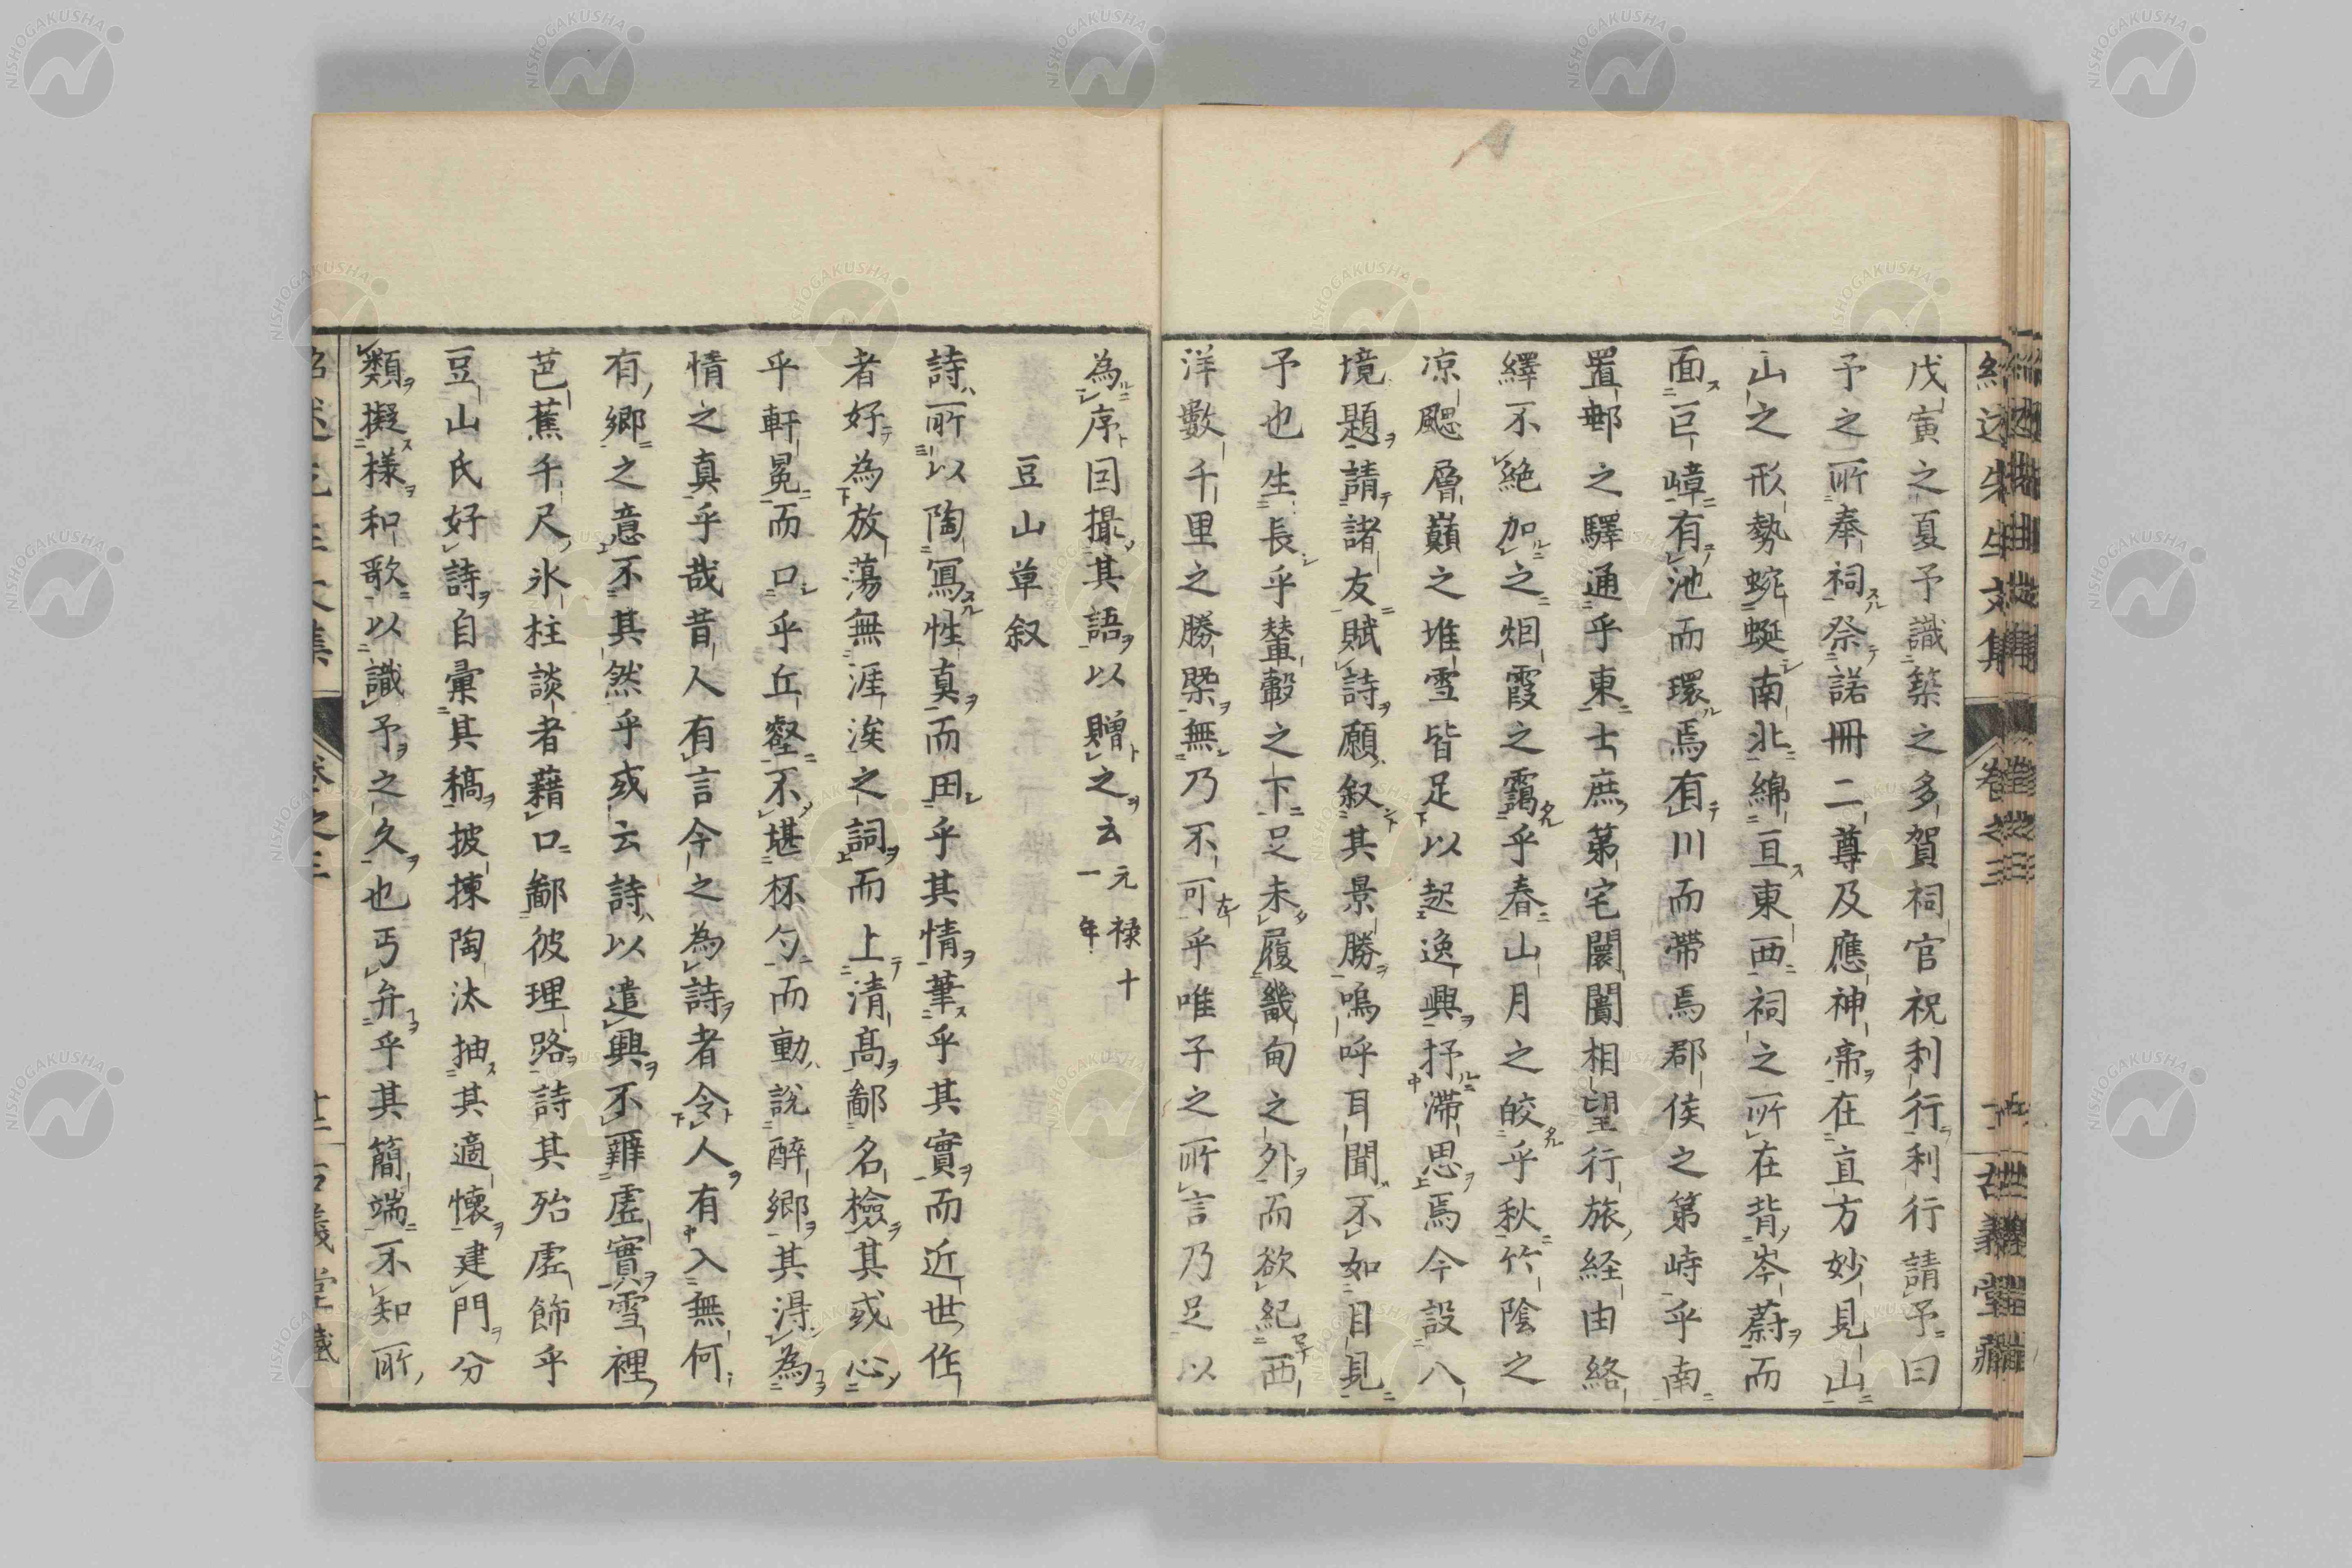 戊寅之夏予識築之多賀祠官祝利行利行請予曰
予之所奉祠祭諾冊二尊及應神帝在直方妙見山
山之形勢蜿蜒南北綿亘東西祠之所在背岑蔚而
面巨嶂有池而環焉有川而帶焉郡侯之第峙乎南
置郵之驛通乎東士庶第宅闤闠相望行旅経由絡
繹不絶加之烟霞之靄乎春山月之皎乎秋竹陰之
凉颸層巓之堆雪皆足以起逸興抒滯思焉今設八
境題請諸友賦詩願叙其景勝嗚呼耳聞不如目見
予也生長乎輦轂之下足未履畿甸之外而欲紀西
洋數千里之勝槩無乃不可乎唯子之所言乃足以
為序因撮其語以贈之云元禄十一年
豆山草叙
詩所以陶寫性真而田乎其情筆乎其實而近世作
者好為放蕩無涯涘之詞而上清高鄙名檢其或心
乎軒冕而口乎丘壑不堪杯勺而動說醉鄉其淂為
情之真乎哉昔人有言今之為詩者令人有入無何
有鄉之意不其然乎或云詩以遣興不雜虛實雪裡
芭蕉千尺氷柱談者藉口鄙彼理路詩其殆虛飾乎
豆山氏好詩自彙其稿披揀陶汰抽其適懷建門分
類擬樣和歌以識予之久也丐弁乎其簡端不知所
紹述先生文集 卷之三 古義堂藏